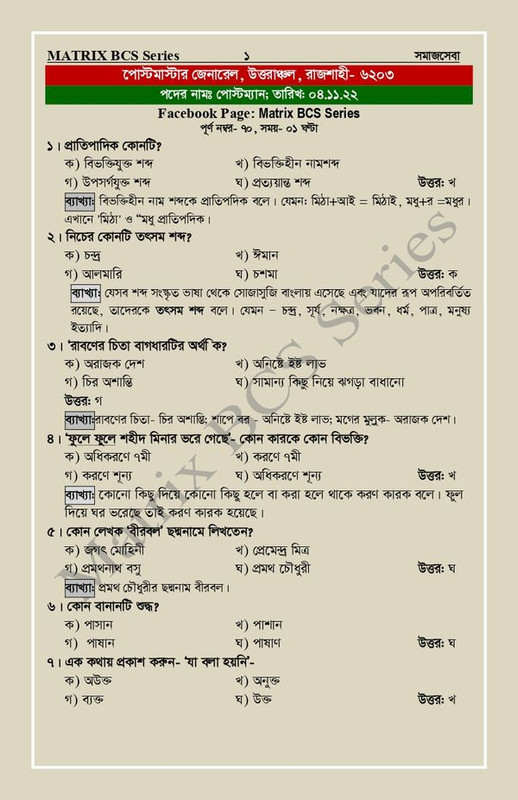 MATRIX BCS Series ১ সমাজসেবা
পোস্টমাস্টার জেনারেল, উত্তরাঞ্চল, রাজশাহী- ৬২০৩
পদের নামঃ পোস্টম্যান; তারিখ: ০৪.১১.২২
Facebook Page: Matrix BCS Series
পূর্ণ নম্বর- ৭০, সময়- ০১ ঘণ্টা
১। প্রাতিপাদিক কোনটি?
ক) বিভক্তিযুক্ত শব্দ খ) বিভক্তিহীন নামশব্দ
গ) উপসর্গযুক্ত শব্দ ঘ) প্রত্যয়ান্ত শব্দ উত্তর: খ
ব্যাখ্যা: বিভক্তিহীন নাম শব্দকে প্রাতিপদিক বলে। যেমন: মিঠা+আই = মিঠাই, মধু+র =মধুর।
এখানে 'মিঠা' ও “মধু প্রাতিপদিক।
২। নিচের কোনটি তৎসম শব্দ?
ক) চন্দ্র খ) ঈমান
গ) আলমারি ঘ) চশমা উত্তর: ক
ব্যাখ্যা: যেসব শব্দ সংস্কৃত ভাষা থেকে সোজাসুজি বাংলায় এসেছে এবং যাদের রূপ অপরিবর্তিত
রয়েছে, তাদেরকে তৎসম শব্দ বলে। যেমন – চন্দ্র, সূর্য, নক্ষত্র, ভবন, ধর্ম, পাত্র, মনুষ্য
ইত্যাদি।
৩। 'রাবণের চিতা বাগধারটির অর্থী ক?
ক) অরাজক দেশ খ) অনিষ্টে ইষ্ট লাভ
গ) চির অশান্তি ঘ) সামান্য কিছু নিয়ে ঝগড়া বাধানো
উত্তর: গ
ব্যাখ্যা:রাবণের চিতা- চির অশান্তি; শাপে বর - অনিষ্টে ইষ্ট লাভ; মগের মুলুক- অরাজক দেশ।
৪। 'ফুলে ফুলে শহীদ মিনার ভরে গেছে'- কোন কারকে কোন বিভক্তি?
ক) অধিকরণে ৭মী খ) করণে ৭মী
গ) করণে শূন্য ঘ) অধিকরণে শূন্য উত্তর: খ
ব্যাখ্যা: কোনো কিছু দিয়ে কোনো কিছু হলে বা করা হলে থাকে করণ কারক বলে। ফুল
দিয়ে ঘর ভরেছে তাই করণ কারক হয়েছে।
৫। কোন লেখক 'বীরবল' ছদ্মনামে লিখতেন?
ক) জগৎ মোহিনী খ) প্রেমেন্দ্র মিত্র
গ) প্রমথনাথ বসু ঘ) প্রমথ চৌধুরী উত্তর: ঘ
ব্যাখ্যা: প্রমথ চৌধুরীর ছদ্মনাম বীরবল।
৬। কোন বানানটি শুদ্ধ?
ক) পাসান খ) পাশান
গ) পাষান ঘ) পাষাণ উত্তর: ঘ
৭। এক কথায় প্রকাশ করুন- 'যা বলা হয়নি'-
ক) অউক্ত খ) অনুক্ত
গ) ব্যক্ত ঘ) উক্ত উত্তর: খ
Matrix BCS Series